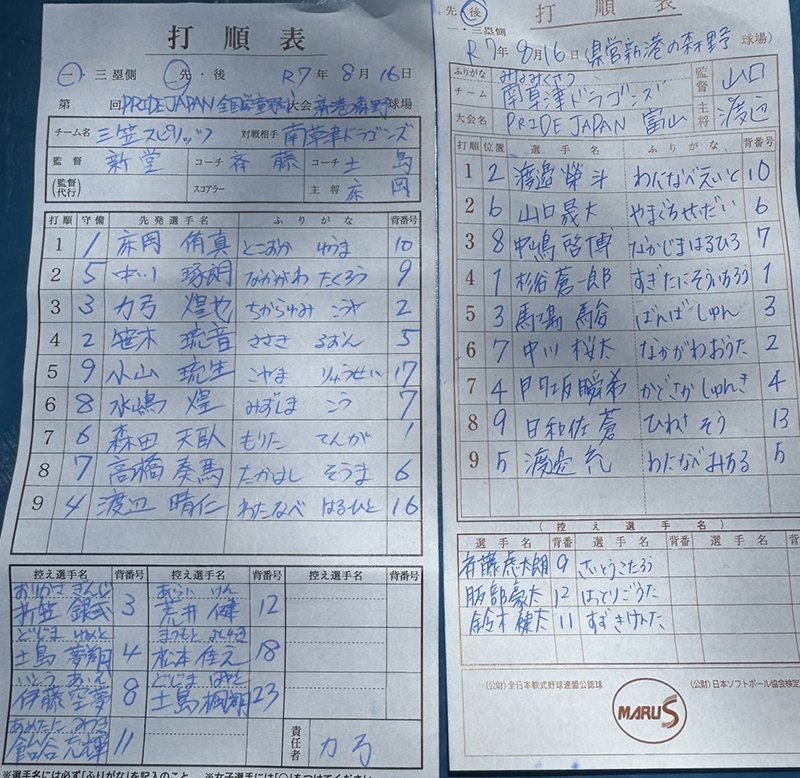 打順表
一・三塁側 先・後 R7年8月16日
第 回 PRIDE JAPAN 全国学童野球大会 新港の森野球場
チーム名 三笠スピリッツ 対戦相手 南草津ドラゴンズ
監督 新堂 コーチ 斉藤 コーチ 土島
(監督代行) スコアラー 主将 床岡
打順 守備 先発選手名 ふりがな 背番号
1 1 床岡 侑真 とこおか ゆうま 10
2 5 中川 琢朗 なかがわ たくろう 9
3 3 力弓 煌也 ちからゆみ こうや 2
4 2 笹木 琉音 ささき るおん 5
5 9 小山 琉生 こやま りゅうせい 17
6 8 水嶋 煌 みずしま こう 7
7 6 森田 天臥 もりた てんが 1
8 7 高橋 奏馬 たかはし そうま 6
9 4 渡辺 晴仁 わたなべ はるひと 16
控え選手名 背番号 控え選手名 背番号 控え選手名 背番号
おりかさ ぎんじ あらい けん
折笠 銀 3 荒井 健 12
どじま ゆめと まつもと
土島 夢翔 4 松本 佳之 18
いとう あいん どじま はやと
伊藤 空夢 8 土島 颯翔 23
あめたに みつき
飴谷 充輝 11 責任者 力弓
※選手名には必ず「ふりがな」を記入のこと ※女子選手には「○」をつけてください
先 後 打順表
一・三塁側 R7年8月16日 (県営新港の森野 球場)
ふりがな みなみくさつ 監督 山口
チーム 南草津ドラゴンズ
大会名 PRIDE JAPAN 富山 主将 渡辺
打順 位置 選手名 ふりがな 背番号
1 2 渡邉 榮斗 わたなべえいと 10
2 6 山口晟大 やまぐちせいだい 6
3 8 中嶋啓博 なかじまはるひろ 7
4 1 杉谷蒼一郎 すぎたにそういちろう 1
5 3 馬場 駿 ばんば しゅん 3
6 7 中川 桜太 なかがわおうた 2
7 4 門坂瞬希 かどさかしゅんき 4
8 9 日和佐 蒼 ひわさ そう 13
9 5 渡邉 充 わたなべみちる 5
(控え選手名)
選手名 背番 選手名 背番
斉藤虎太朗 9 さいとうこたろう
服部豪太 12 はっとりごうた
鈴木健太 11 すずきけんた
(公財)全日本軟式野球連盟公認球 MARUS (公財)日本ソフトボール協会検定